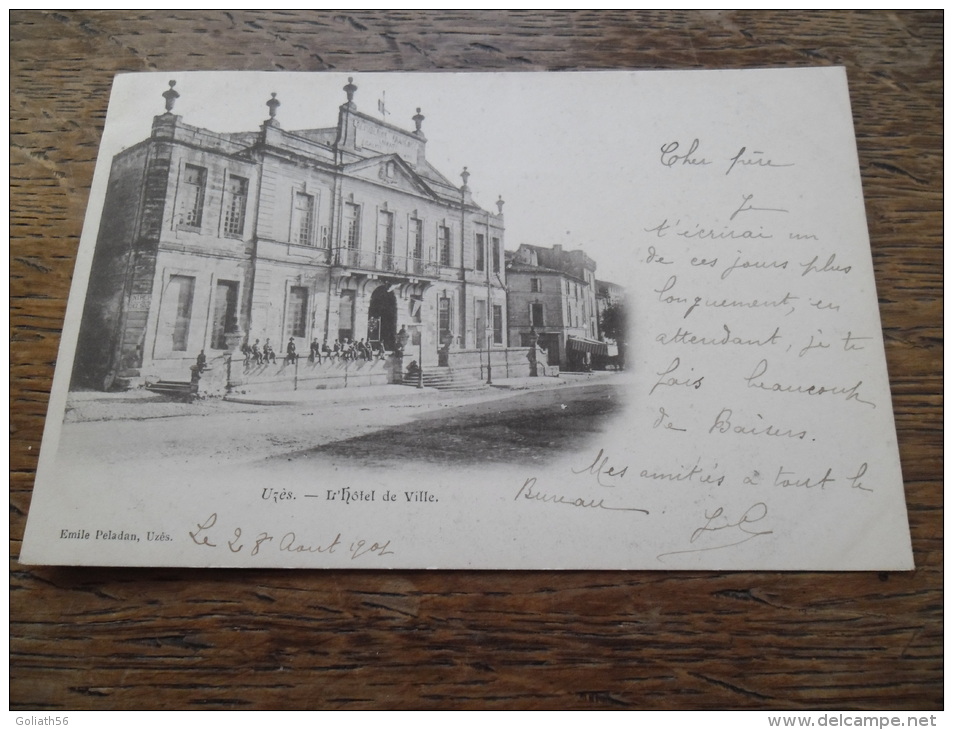 Cher frère
Je
t'écrirai un
de ces jours plus
longuement, en
attendant, je te
fais beaucoup
de Baisers.
Mes amitiés à tout le
Bureau
Uzès. — L'Hôtel de Ville.
Emile Peladan, Uzès.
Le 28 Aout 1901
Goliath56
http://www.delcampe.net